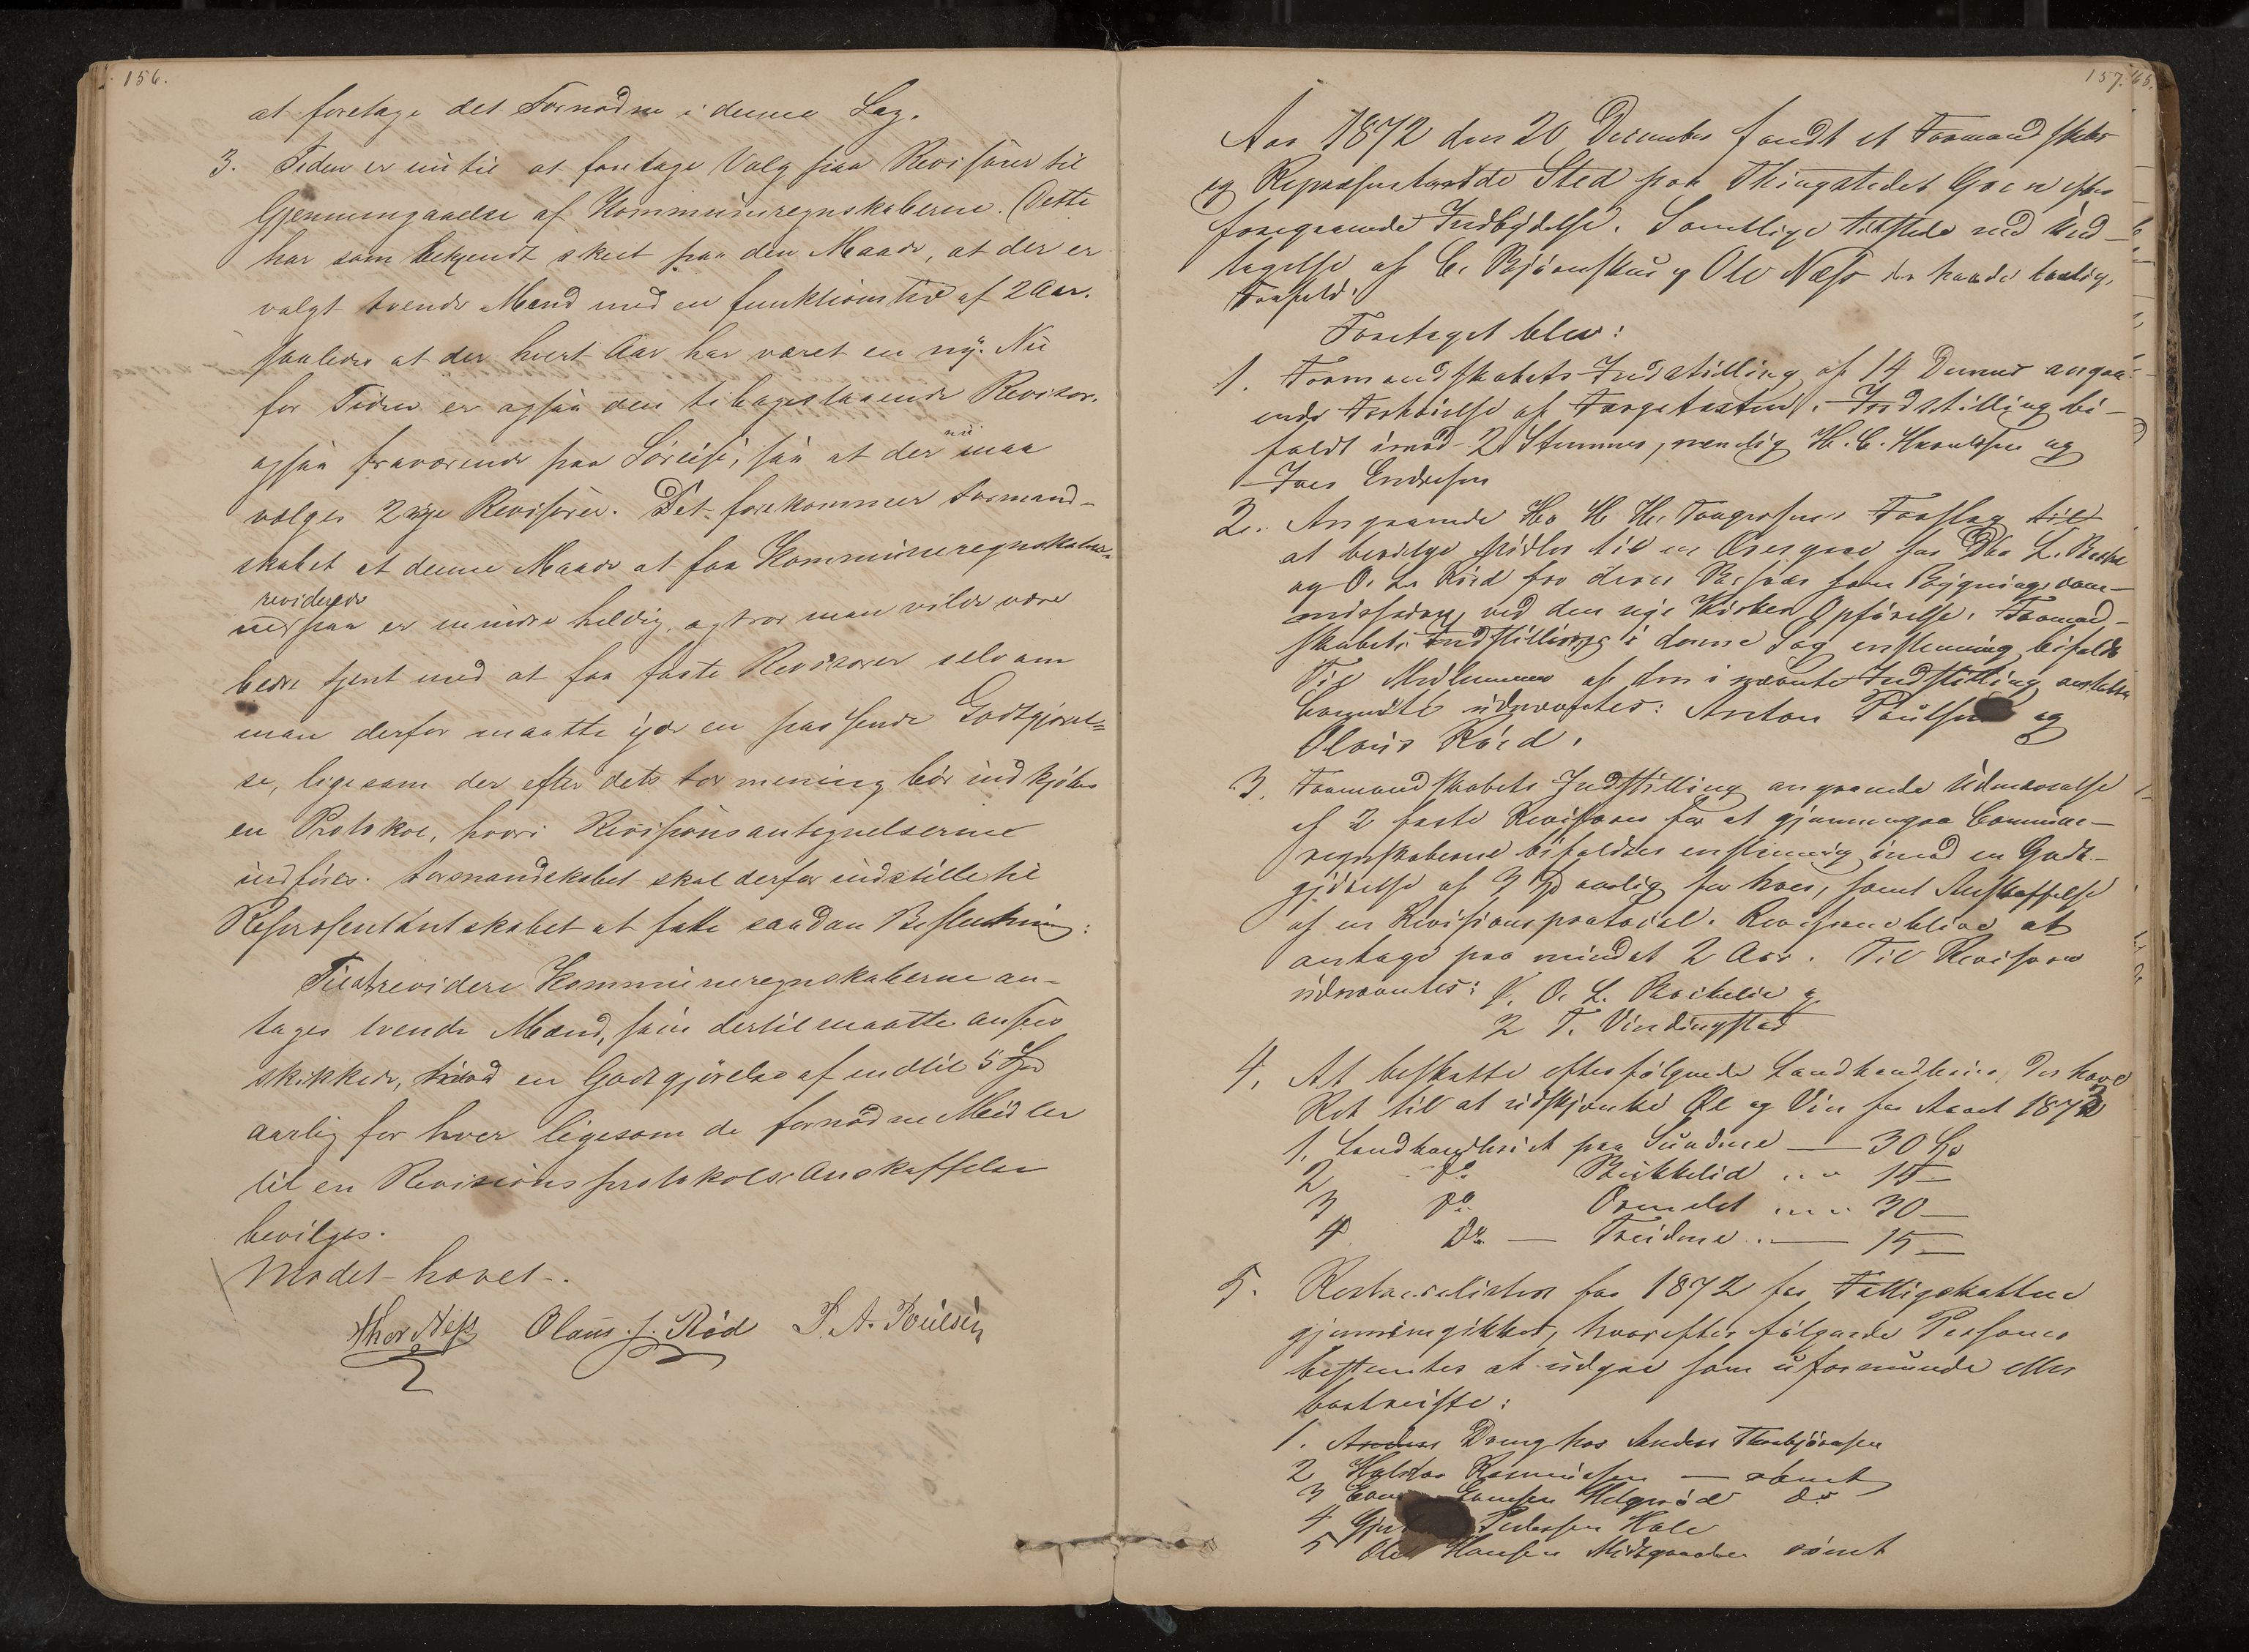 156.
at foretage det Fornødne i denne Sag.
3. Tiden er nu til at foretage Valg paa Revisorer til
Gjennemgaaelse af Kommuneregnskaberne. Dette
har som bekjendt skeet paa den Maade, at der er
valgt tvende Mænd med en funktionstid af 2 Aar.
saaledes at der hvert Aar har været en ny. Nu
for Tiden er ogsaa den tilbagestaaende Revisor.
ogsaa fraværende paa Söreise, saa at der nu maa
vælges 2 nye Revisorer. Det forekommer Formand-
skabet at denne Maade at faa Kommuneregnskaberne
revideret
paa er mindre heldig, og tror man vilde være
bedre tjent med at faa faste Revisorer selv om
man derfor maatte yde en passende Godtgjørel-
se, ligesom der efter dets formening bör indkjöbes
en Protokol, hvori Revisionsantegnelserne
indföres. Formandskabet skal derfor indstille til
Repræsentantskabet at fatte saadan Beslutning:
Til at revidere Kommuneregnskaberne an-
tages tvende Mænd, som dertil maatte ansees
skikkede, imod en Godtgjörelse af indtil 5 Spd
aarlig for hver ligesom de fornødne Midler
til en Revisionsprotokols Anskaffelse
bevilges.
Mødet hævet.
Thor Næss Olaus J. Röd P. A. Poulsen
157. 65.
Aar 1872 den 20 December fandt et Formandskabs
og Repræsentantmøde Sted paa Thingstedet Goen efter
foregaaende Indbydelse. Samtlige tilstede med Und-
tagelse af C. Björnskau og Ole Næss der havde lovlig
Forfald.
Foretaget blev:
1. Formandskabets Indstilling af 14 Dennes angaa-
ende Forhöielse af Indstilling bi-
faldt imod 2 Stemmer, nemlig H. C. Knoulsen og
Iver Endresen
2. Angaaende Forslag til
at bevilge Midler til en for L.
og O. L. Röed for deres som Bygningscom-
missionen ved den nye Kirkes Opförelse. Formand-
skabets Indstilling i denne Sag enstemmig bifaldt
Til Medlemmer af den i nævnte Indstilling
Comitte udnævntes: Anton Poulsen og
Olaus Röed.
3. Formandskabets Indstilling angaaende Udnævnelse
af 2 faste Revisorer for at gjennemgaa Commune-
regnskaberne bifaldtes enstemmig imod en Godt-
gjörelse af 3 Spd aarlig for hver, samt Anskaffelse
af en Revisionsprotocol. Revisorerne blive at
antage paa mindst 2 Aar. Til Revisorer
udnævntes: 1. O. L. Bockelie og
2 T. Vindingstad
4. At beskatte efterfölgende Landhandlerier, der have
Ret til at udskjænke Øl og Vin for Aaret 1873
1. Landhandleriet paa Sundene — 30 Spd
2 do Bukkelid " 15 —
3 do Ormelet " 30 —
4 Do — Treidene — 15 —
5. Restancelisten for 1872 for Fattigskatten
gjennemgikkes, hvorefter fölgende Personer
bestemtes at udgaa som uformuende eller
bortreiste:
1. Anders Dreng hos Anders Thorbjörnsen
2 Halvor Rasmussen — römt
3 Helgeröd do
4 Pedersen Hale
5 Ole Hansen Midtgaarden römt